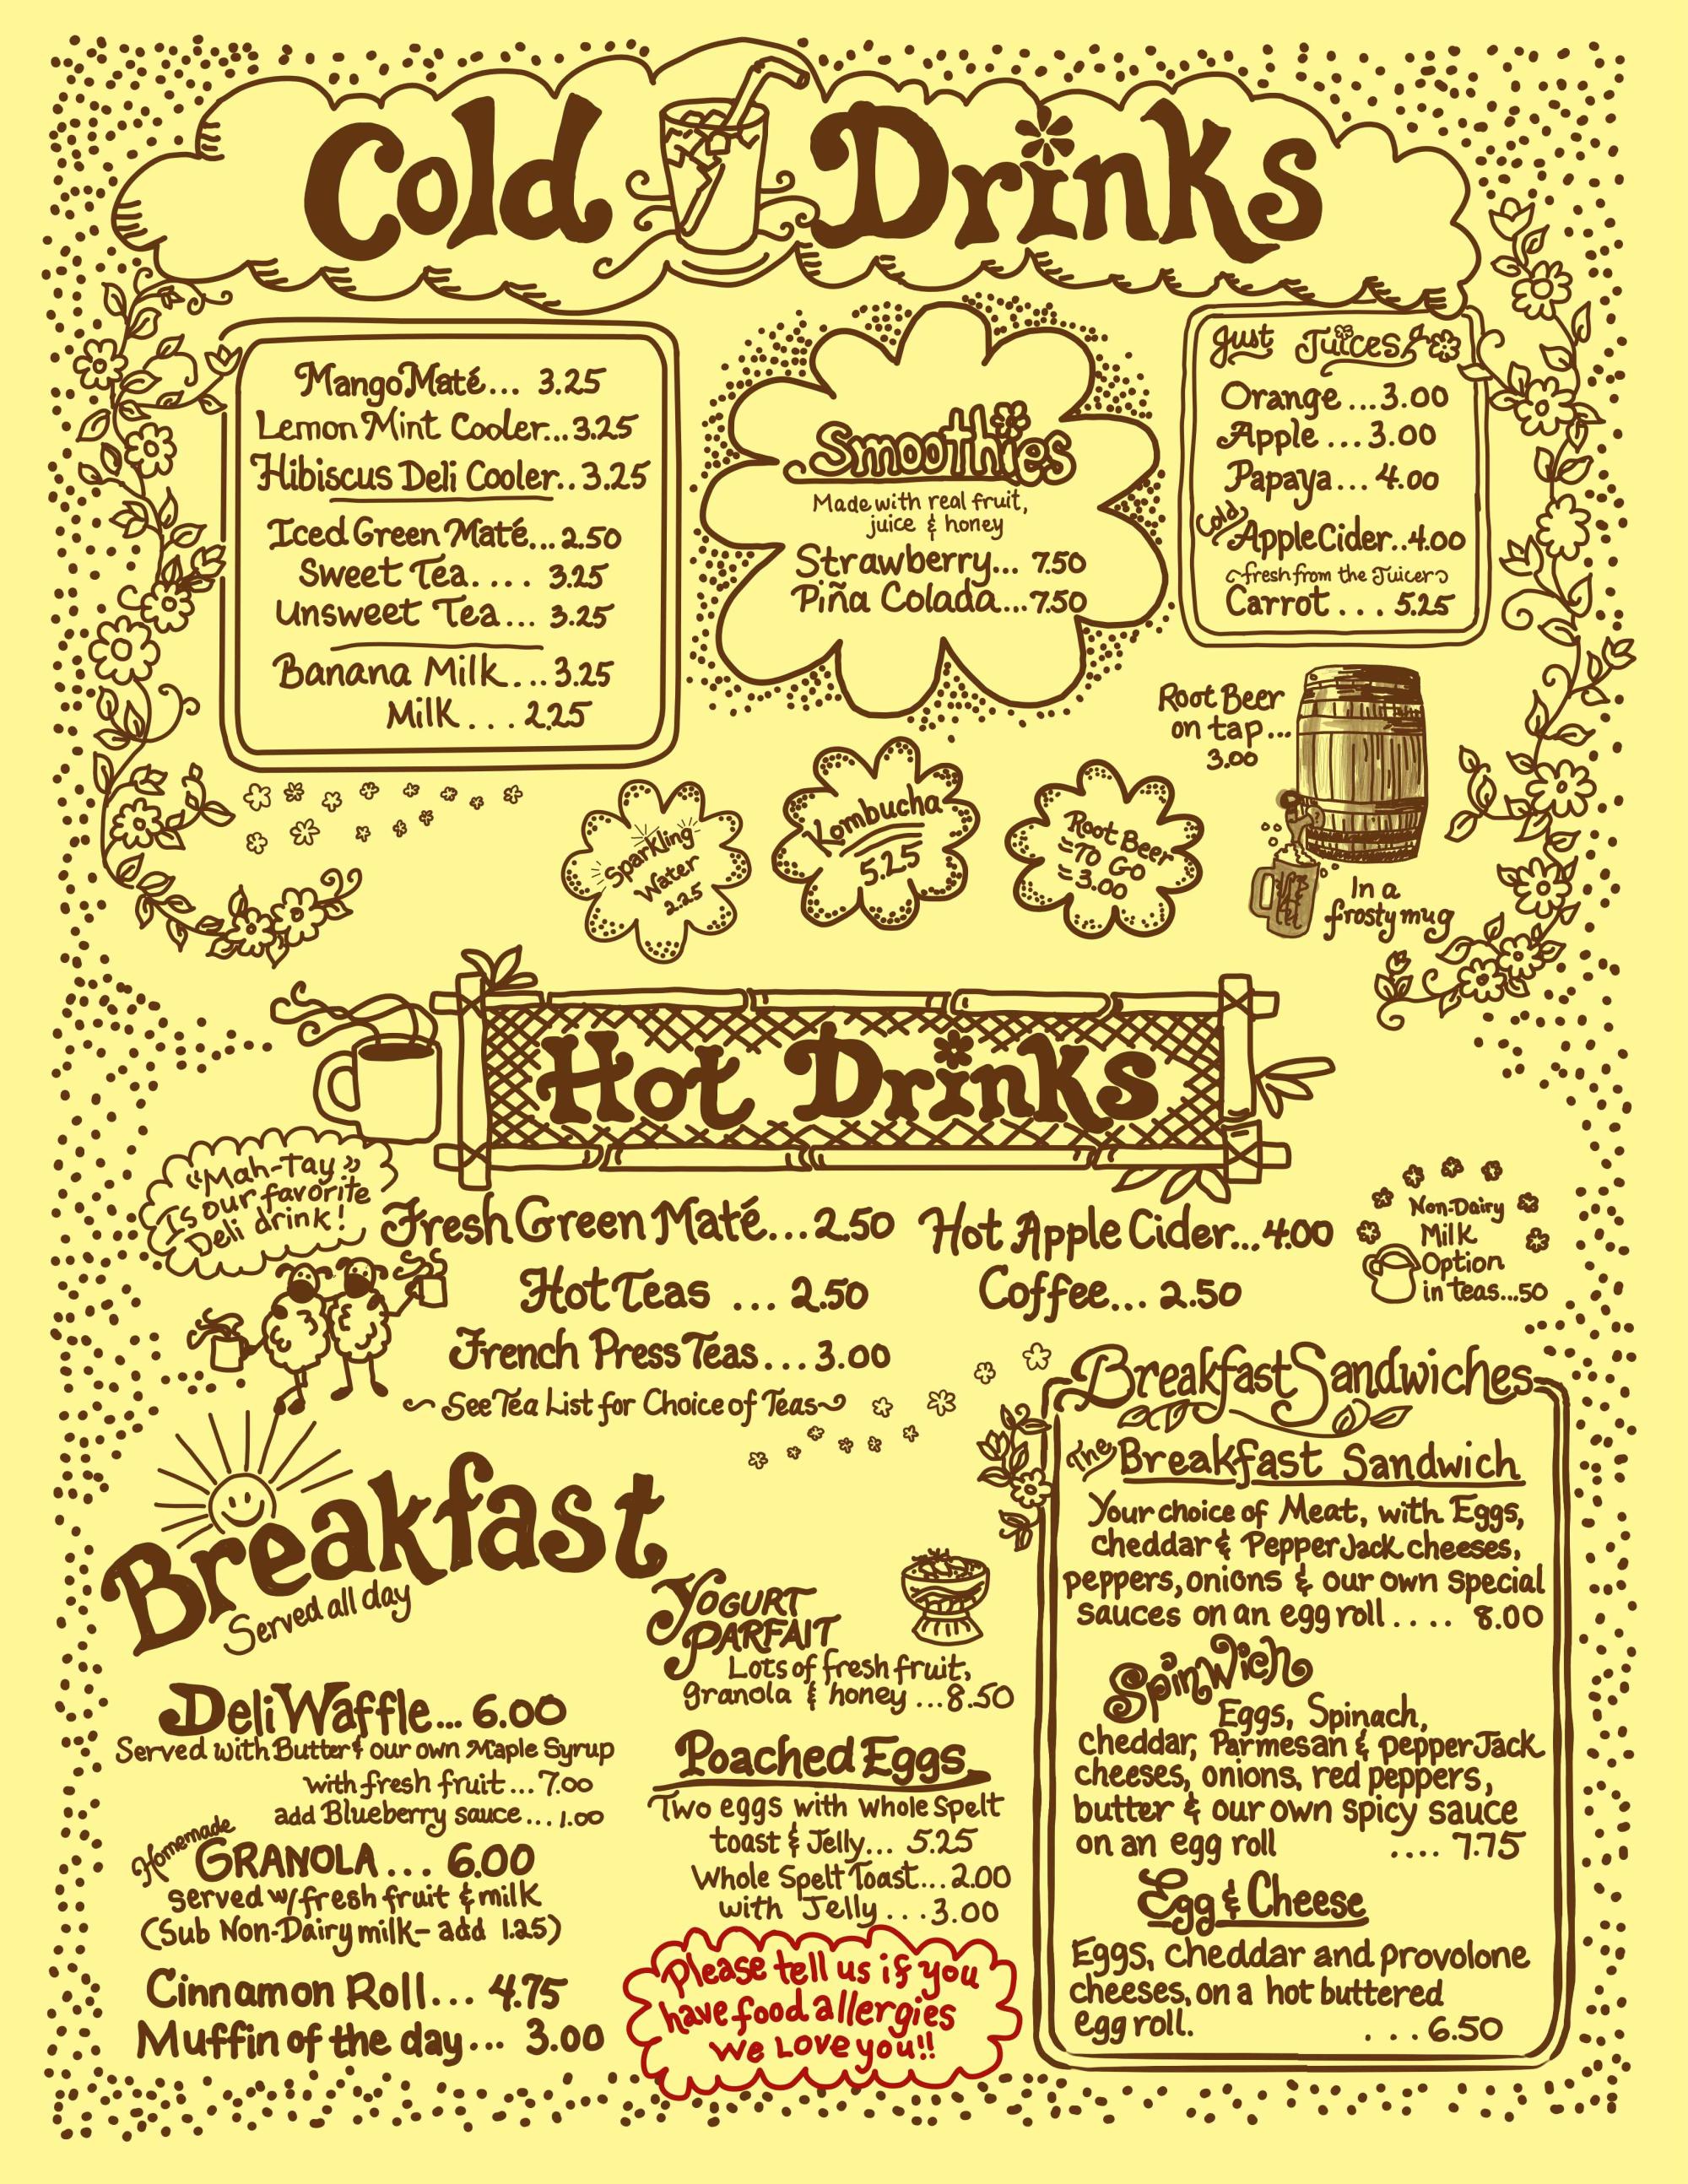 Cold Drinks
Mango Maté... 3.25
Lemon Mint Cooler...3.25
Hibiscus Deli Cooler..3.25
Iced Green Maté...2.50
Sweet Tea.... 3.25
Unsweet Tea... 3.25
Banana Milk....3.25
Milk... 2.25
Smoothies
Made with real fruit,
juice & honey
Strawberry... 7.50
Piña Colada...7.50
Just Juices
Orange...3.00
Apple...3.00
Papaya... 4.00
Cold Apple Cider..4.00
~fresh from the Juicer~
Carrot... 5.25
Root Beer
on tap...
3.00
In a
frosty mug
Sparkling
Water
2.25
Kombucha
5.25
Root Beer
=To Go=
3.00
Hot Drinks
"Mah-Tay"
Is our favorite
Deli drink!
Fresh Green Maté...2.50
Hot Teas ... 2.50
French Press Teas...3.00
~See Tea List for Choice of Teas~
Hot Apple Cider...4.00
Coffee... 2.50
Non-Dairy
Milk
Option
in teas...50
Breakfast
Served all day
Deli Waffle... 6.00
Served with Butter & our own Maple Syrup
with fresh fruit...7.00
add Blueberry sauce...1.00
Homemade
GRANOLA... 6.00
served w/fresh fruit & milk
(Sub Non-Dairy milk- add 1.25)
Cinnamon Roll... 4.75
Muffin of the day... 3.00
YOGURT
PARFAIT
Lots of fresh fruit,
granola & honey...8.50
Poached Eggs
Two eggs with whole Spelt
toast & Jelly... 5.25
Whole Spelt Toast...2.00
with Jelly...3.00
Please tell us if you
have food allergies
We Love you!!
Breakfast Sandwiches
The Breakfast Sandwich
Your choice of Meat, with Eggs,
cheddar & Pepper Jack cheeses,
peppers, onions & our own special
sauces on an egg roll.... 8.00
SpinWich
Eggs, Spinach,
cheddar, Parmesan & pepper Jack
cheeses, onions, red peppers,
butter & our own spicy sauce
on an egg roll .... 7.75
Egg & Cheese
Eggs, cheddar and provolone
cheeses, on a hot buttered
egg roll. ...6.50